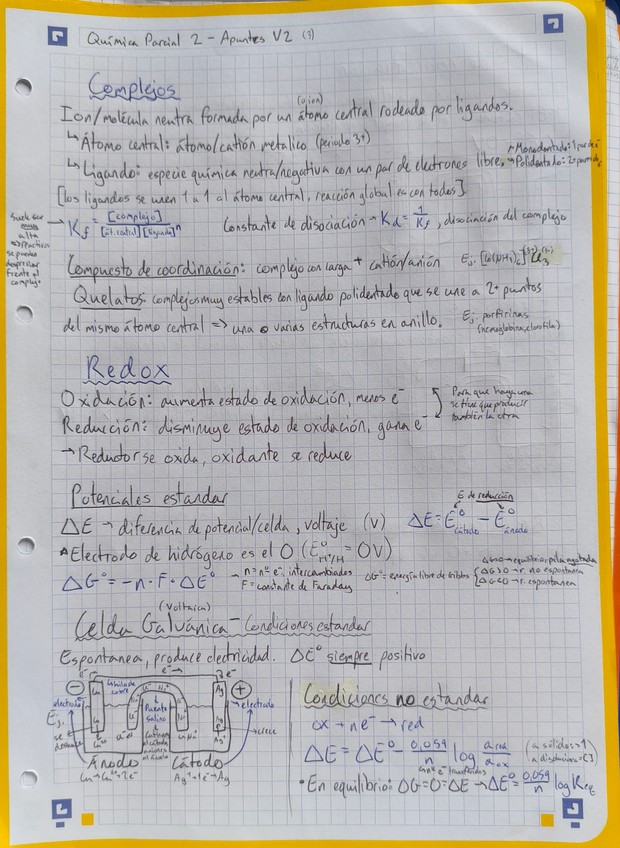 Química Parcial 2 - Apuntes V2 (3)
Complejos
(o ion)
Ion/molécula neutra formada por un átomo central rodeado por ligandos.
↳ Átomo central: átomo/catión metálico (periodo 3+)
↳ Ligando: especie química neutra/negativa con un par de electrones libre.
→ Monodentado: 1 par de e⁻
→ Polidentado: 2+ par de e⁻
[los ligandos se unen 1 a 1 al átomo central, reacción global es con todos]
Suele ser muy alta => reactivos se pueden despreciar frente al complejo
→ Kf = [complejo] / [át. central][ligando]ⁿ
Constante de disociación → Kd = 1/Kf, disociación del complejo
Compuesto de coordinación: complejo con carga + catión/anión Ej: [Co(NH₃)₆]⁽³⁺⁾Cl₃⁽¹⁻⁾
Quelatos: complejos muy estables con ligando polidentado que se une a 2+ puntos
del mismo átomo central => una o varias estructuras en anillo. Ej: porfirinas
(hemoglobina, clorofila)
Redox
Oxidación: aumenta estado de oxidación, menos e⁻
Reducción: disminuye estado de oxidación, gana e⁻
Para que haya una se tiene que producir también la otra
→ Reductor se oxida, oxidante se reduce
Potenciales estandar
E de reducción
ΔE → diferencia de potencial/celda, voltaje (V) ΔE = E⁰cátodo - E⁰ánodo
Electrodo de hidrógeno es el 0 (E⁰H⁺/H = 0V)
ΔG° = -n·F·ΔE°
→ n = nº e⁻ intercambiados
F = constante de Faraday
ΔG° = energía libre de Gibbs
ΔG=0 → equilibrio, pila agotada
ΔG>0 → r. no espontanea
ΔG<0 → r. espontanea
(Voltaica)
Celda Galvánica - Condiciones estandar
Espontanea, produce electricidad. ΔE⁰ siempre positivo
e⁻ →
- electrodo
Ej:
Cu
Ag
+ electrodo
Puente salino
crece
Ánodo
Cu → Cu²⁺ + 2e⁻
Cátodo
Ag⁺ + 1e⁻ → Ag
Condiciones no estandar
ox + ne⁻ → red
ΔE = ΔE⁰ - 0,059/n log a red/a ox
(a sólidos = 1
a disolución = [ ])
n = nº e⁻ transferidos
• En equilibrio: ΔG = 0 = ΔE → ΔE⁰ = 0,059/n log Keq